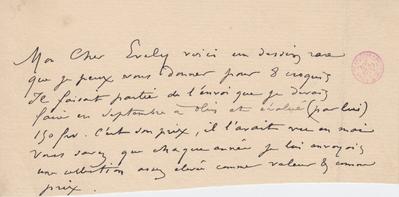 Mon Cher Evely voici un dessin rare
que je peux vous donner pour 8 croquis
Il faisait partie de l'envoi que je devais
faire en Septembre à et évalué (par lui)
150 frs. C'est son prix, il l'avait vu en main
Vous savez que chaque année je lui envoyais
une collection assez élevée comme valeur & comme
prix.